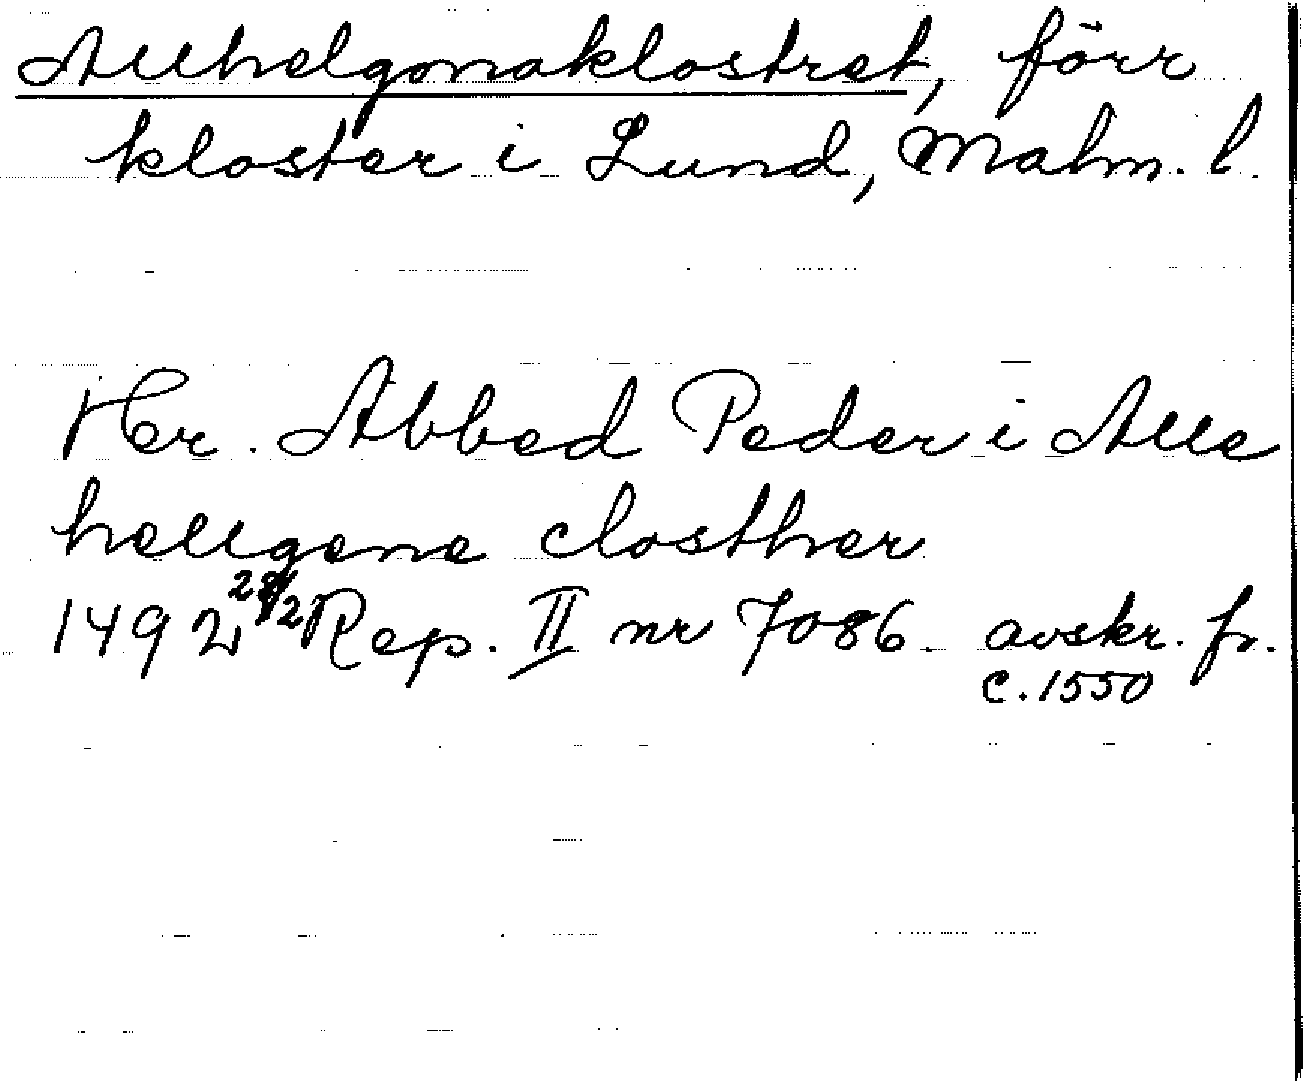 Allhelgonaklostret, förr
kloster i Lund, Malm. l.
Her. Abbed Peder i Alle
hellgene closther
1492 28/2 Rep. II nr 7086. avskr. fr.
c. 1550